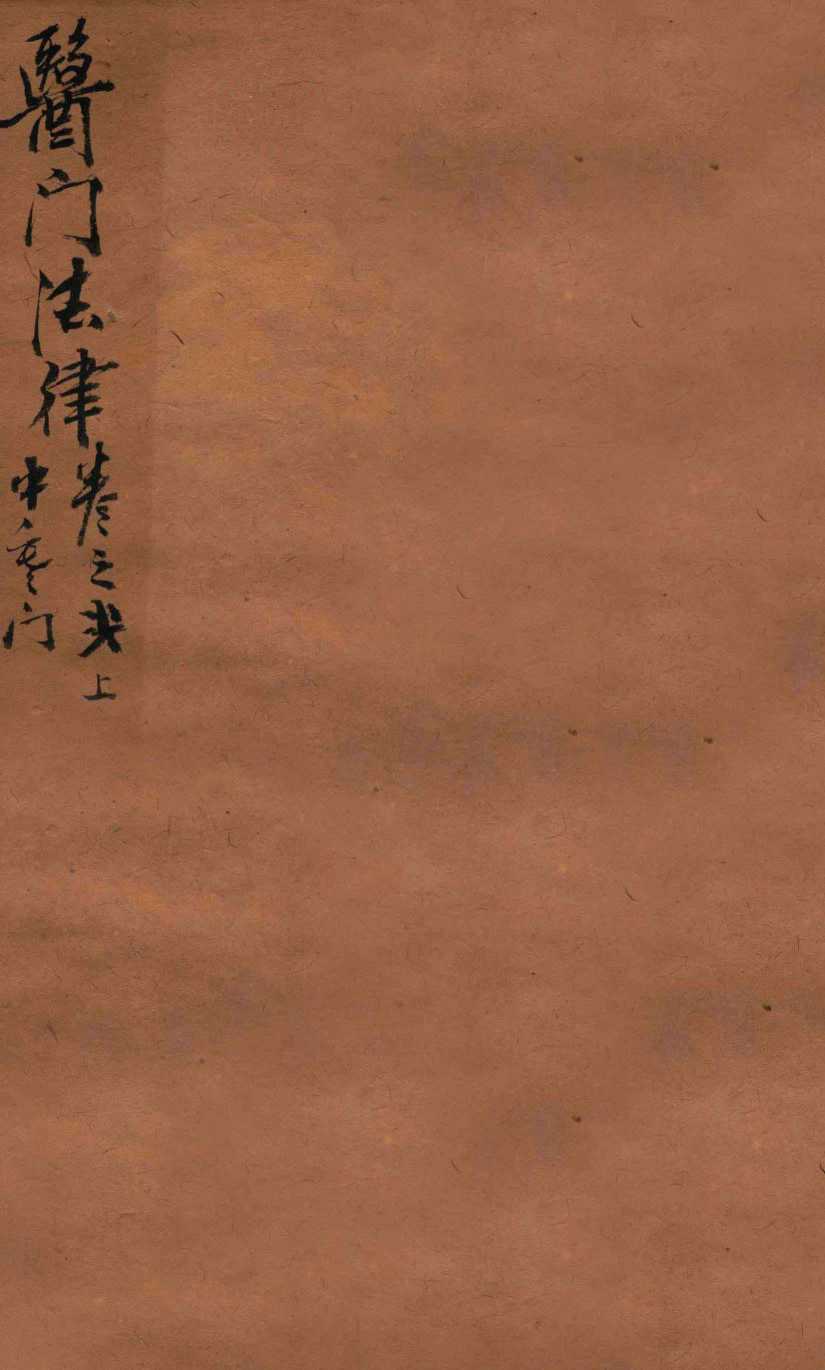 醫门法律
卷之弍上
中寒门